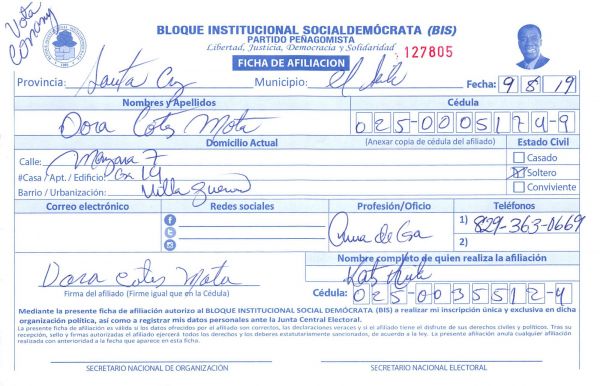 Vota
BLOQUE INSTITUCIONAL SOCIALDEMÓCRATA (BIS)
PARTIDO PEÑAGOMISTA
Libertad, Justicia, Democracia y Solidaridad
FICHA DE AFILIACION
127805
Provincia: Santa Cruz Municipio: El Fecha: 9 8 19
Nombres y Apellidos Cédula
Dora Cotes Mota 025-0005174-9
Domicilio Actual (Anexar copia de cédula del afiliado) Estado Civil
Calle: Manzana 7 Casado
#Casa / Apt. / Edificio: 19 Soltero
Barrio / Urbanización: Villa Conviviente
Correo electrónico Redes sociales Profesión/Oficio Teléfonos
1) 829-363-0669
2)
Ama de
Nombre completo de quien realiza la afiliación
Dora Cotes Mota
Firma del afiliado (Firme igual que en la Cédula) Cédula: 025-0035512-4
Mediante la presente ficha de afiliación autorizo al BLOQUE INSTITUCIONAL SOCIAL DEMÓCRATA (BIS) a realizar mi inscripción única y exclusiva en dicha
organización política, así como a registrar mis datos personales ante la Junta Central Electoral.
La presente ficha de afiliación es válida si los datos ofrecidos por el afiliado son correctos, las declaraciones veraces y si el afiliado tiene el disfrute de sus derechos civiles y políticos. Tras su
recepción, sello y firmas autorizadas el afiliado ejercerá todos los derechos y los deberes estatutariamente sancionados, de acuerdo a la ley. La presente afiliación anula cualquier afiliación
realizada con anterioridad a la fecha que aparece en esta ficha.
SECRETARIO NACIONAL DE ORGANIZACIÓN SECRETARIO NACIONAL ELECTORAL